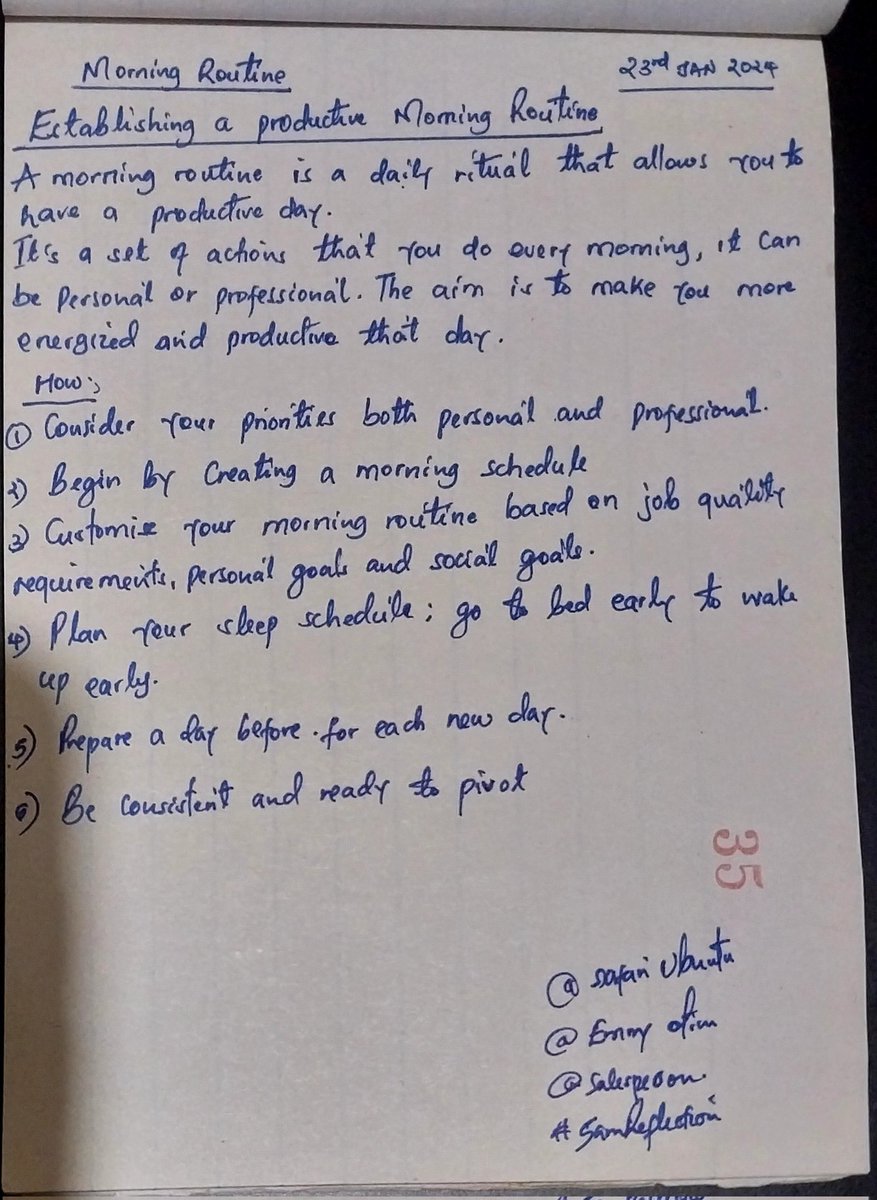 Morning Routine
23rd JAN 2024
Establishing a productive Morning Routine
A morning routine is a daily ritual that allows you to
have a productive day.
It's a set of actions that you do every morning, it can
be Personal or professional. The aim is to make you more
energized and productive that day.
How:
① Consider your priorities both personal and professional.
2) Begin by Creating a morning schedule
3) Customise your morning routine based on job quality
requirements, personal goals and social goals.
4) Plan your sleep schedule; go to bed early to wake
up early.
5) Prepare a day before for each new day.
6) Be consistent and ready to pivot
35
@ Safari Ubuntu
@ Emmy Olim
@ Salesperson
# 5amReflection